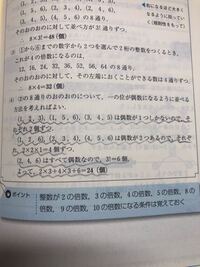 (3, 4, 5), (4, 5, 6) の8通り.
そのおのおのに対して並べ方が3!通りずつ.
∴ 8×3!=48(個)
までの数字から2つを選んで2桁の整数をつくるとき,
これが4の倍数になるのは,
12, 16, 24, 32, 36, 52, 56, 64 の8通り.
そのおのおのに対して, その左端におくことができる数は4通りずつ
∴ 8×4=32(個)
④ ②の8通りのおのおのについて, 一の位が偶数になるように並べる
方法を考えればよい.
(1, 2, 3), (1, 3, 5), (3, 4, 5) は偶数が1つしかないので, そ
れぞれ2個ずつ.
は偶数が2つあるので, それぞ
れ, 2×2×1=4個ずつ.
(2, 4, 6) はすべて偶数なので, 3!=6個.
よって, 2×3+4×3+6=24(個)
ポイント
整数が2の倍数, 3の倍数, 4の倍数, 5の倍数, 8の
倍数, 9の倍数, 10の倍数になる条件は覚えておく